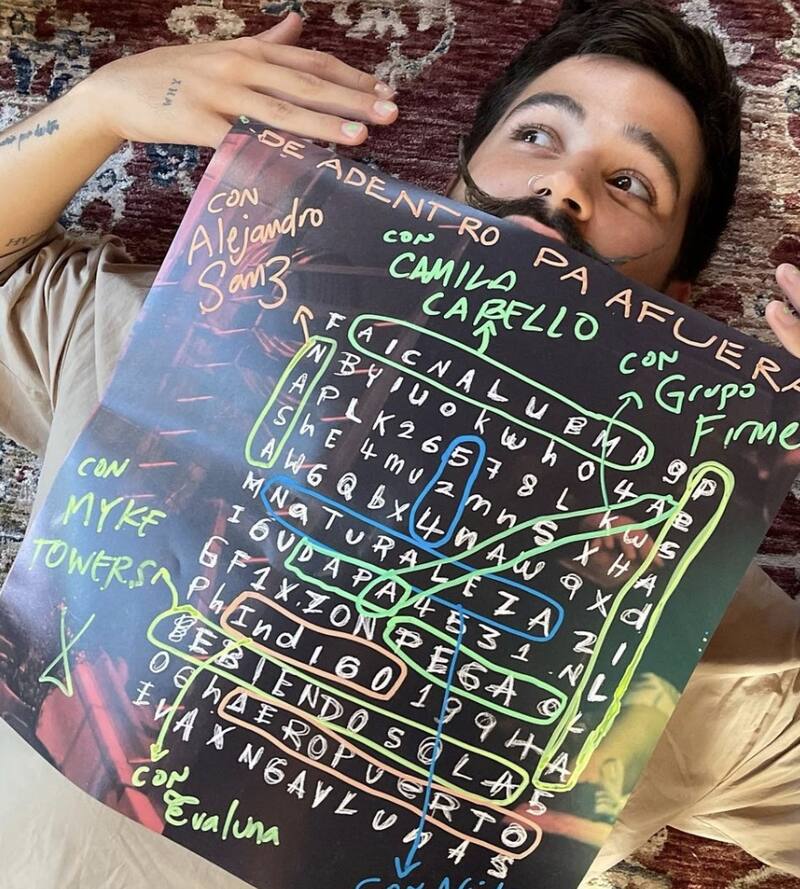 DE ADENTRO PA AFUERA
CON
Alejandro
Sanz
CON
CAMILA
CABELLO
CON
Grupo
Firme
F A I C N A L U B M A 9 P
N B Y I U O K W h O 4 A E
A P L K 2 6 5 7 8 L K W S
S h E 4 m u 2 m n S X H A
A W 6 Q b X 4 n A W 9 X d
M N a T U R A L E Z A 2 I
I 6 U D A P A 4 5 3 1 N L
G F 1 X Z O N P E G A O L
P h I n d I 6 O 1 9 9 H A
B E B I E N D O S O L A 5
O G h A E R O P U E R T O
E V A X N G A V L U n A S
CON
MYKE
TOWERS
X
CON
Evaluna